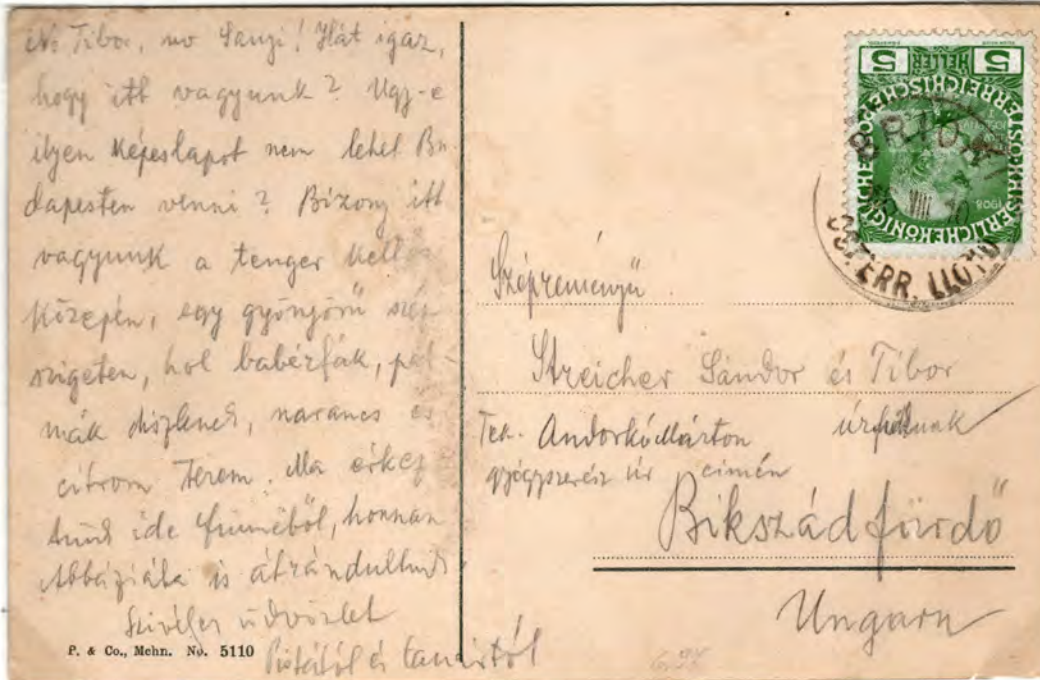 No Tibor, no Sanyi! Hát igaz,
hogy itt vagyunk? Ugy-e
ilyen képeslapot nem lehet Bu-
dapesten venni? Bizony itt
vagyunk a tenger kellős
közepén, egy gyönyörű szép
szigeten, hol babérfák, pál-
mák diszlenek, narancs és
citrom terem. Ma érkez-
tünk ide Fiuméből, honnan
Abbáziába is átrándultunk.
Szívélyes üdvözlet
Pistától és tanártól
P. & Co., Mchn. No. 5110
5 HELLER 5
KAISERLICHEKÖNIGLICHE ÖSTERREICHISCHE POST
1908
VIII
OSTERR. LLOYD
Szépreményű
Streicher Sándor és Tibor
úrfiaknak
Tek. Andorkó Márton
gyógyszerész úr címén
Bikszádfürdő
Ungarn